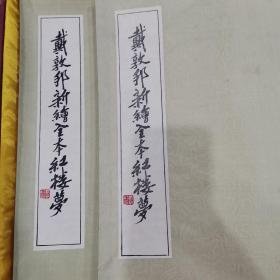 戴敦邦新繪全本紅樓夢
戴敦邦新繪全本紅樓夢